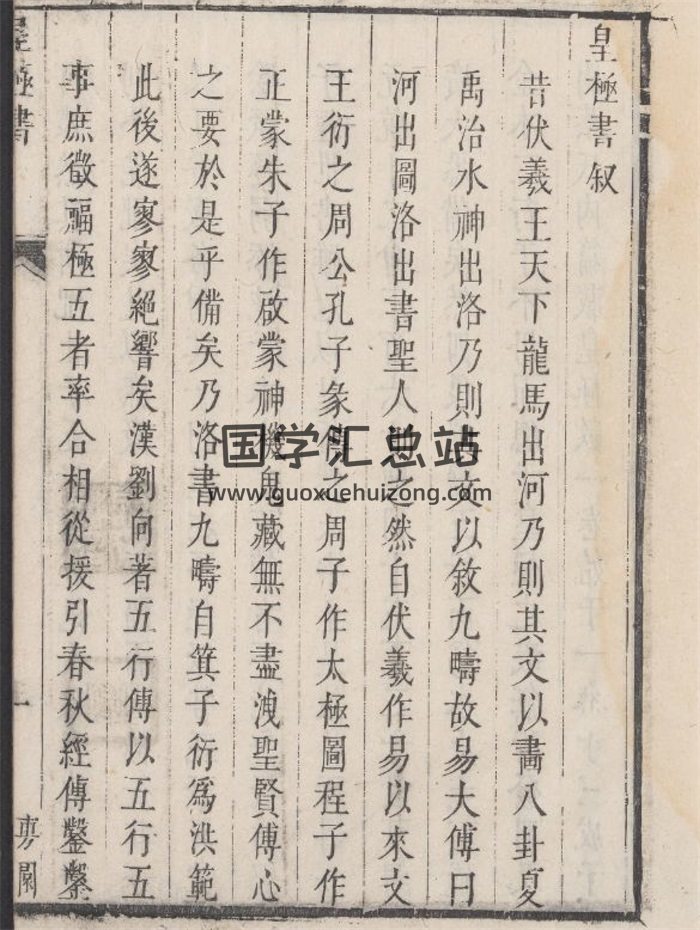 皇極書叙
昔伏羲王天下龍馬出河乃則其文以畵八卦夏
禹治水神出洛乃則其文以敘九疇故易大傳曰
河出圖洛出書聖人則之然自伏羲作易以來文
王衍之周公孔子彖傳之周子作太極圖程子作
正蒙朱子作啟蒙神機鬼藏無不盡洩聖賢傳心
之要於是乎備矣乃洛書九疇自箕子衍爲洪範
此後遂寥寥絕響矣漢劉向著五行傳以五行五
事庶徵福極五者率合相從援引春秋經傳鑿鑿
皇極書
一
國学汇总站
www.guoxuehuizong.com